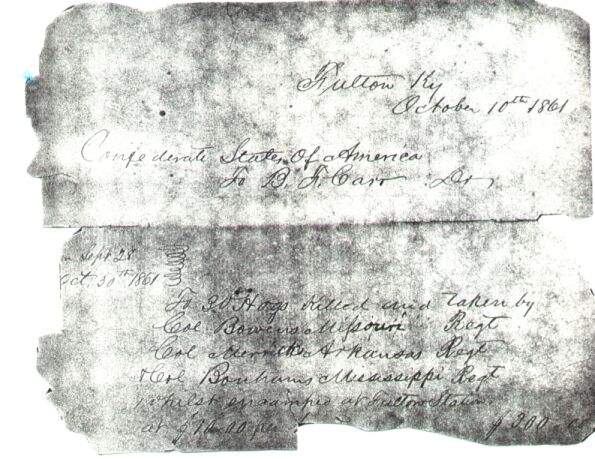 Fulton Ky
October 10th 1861
Confederate States Of America
To B. F. Carr Dr,
Sept 28
Oct. 30th 1861
To 30 Hogs killed and taken by
Col Bowens Missouri Regt
Col Merricks Arkansas Regt
& Col Bonhams Mississippi Regt
whilst encamped at Fulton Station
at $10.00 per $300